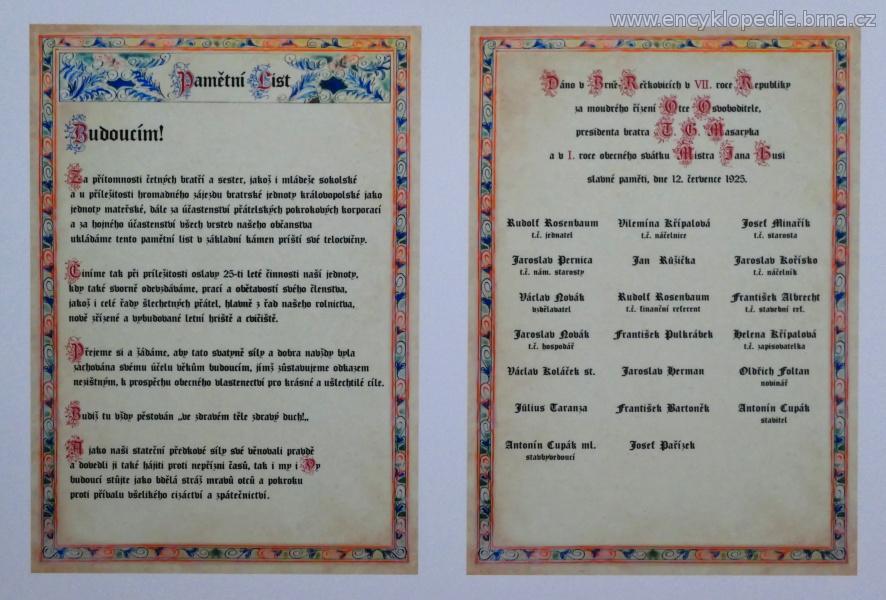 www.encyklopedie.brna.cz
Pamětní List
Budoucím!
Za přítomnosti četných bratří a sester, jakož i mládeže sokolské
a u příležitosti hromadného zájezdu bratrské jednoty královopolské jako
jednoty mateřské, dále za účastenství přátelských pokrokových korporací
a za hojného účastenství všech vrstev našeho občanstva
ukládáme tento pamětní list v základní kámen příští své telocvičny.
Činíme tak při príležitosti oslavy 25-ti leté činnosti naší jednoty,
kdy také svorně odevzdáváme, prací a obětavostí svého členstva,
jakož i celé řady šlechetných přátel, hlavně z řad našeho rolnictva,
nově zřízené a vybudované letní hriště a cvičiště.
Přejeme si a žádáme, aby tato svatyně síly a dobra navždy byla
zachována svému účelu věkům budoucím, jímž zůstavujeme odkazem
nezištným, k prospěchu obecného vlastenectví pro krásné a ušlechtilé cíle.
Budiž tu vždy pěstován „ve zdravém těle zdravý duch!„
A jako naši stateční předkové síly své věnovali pravdě
a dovedli ji také hájiti proti nepřízni časů, tak i my i Vy
budoucí stůjte jako bdělá stráž mravů otců a pokroku
proti přívalu všelikého cizáctví a zpátečnictví.
Dáno v Brně-Řečkovicích v VII. roce Republiky
za moudrého řízení Otce Osvoboditele,
presidenta bratra T. G. Masaryka
a v I. roce obecného svátku Mistra Jana Husi
slavné paměti, dne 12. července 1925.
Rudolf Rosenbaum Vilemína Křípalová Josef Minařík
t.č. jednatel t.č. náčelnice t.č. starosta
Jaroslav Pernica Jan Růžička Jaroslav Kořísko
t.č. nám. starosty t.č. náčelník
Václav Novák Rudolf Rosenbaum František Albrecht
vzdělavatel t.č. finanční referent t.č. stavební ref.
Jaroslav Novák František Pulkrábek Helena Křípalová
t.č. hospodář t.č. zapisovatelka
Václav Koláček st. Jaroslav Herman Oldřich Foltan
novinář
Július Taranza František Bartoněk Antonín Cupák
stavitel
Antonín Cupák ml. Josef Pařízek
stavbyvedoucí